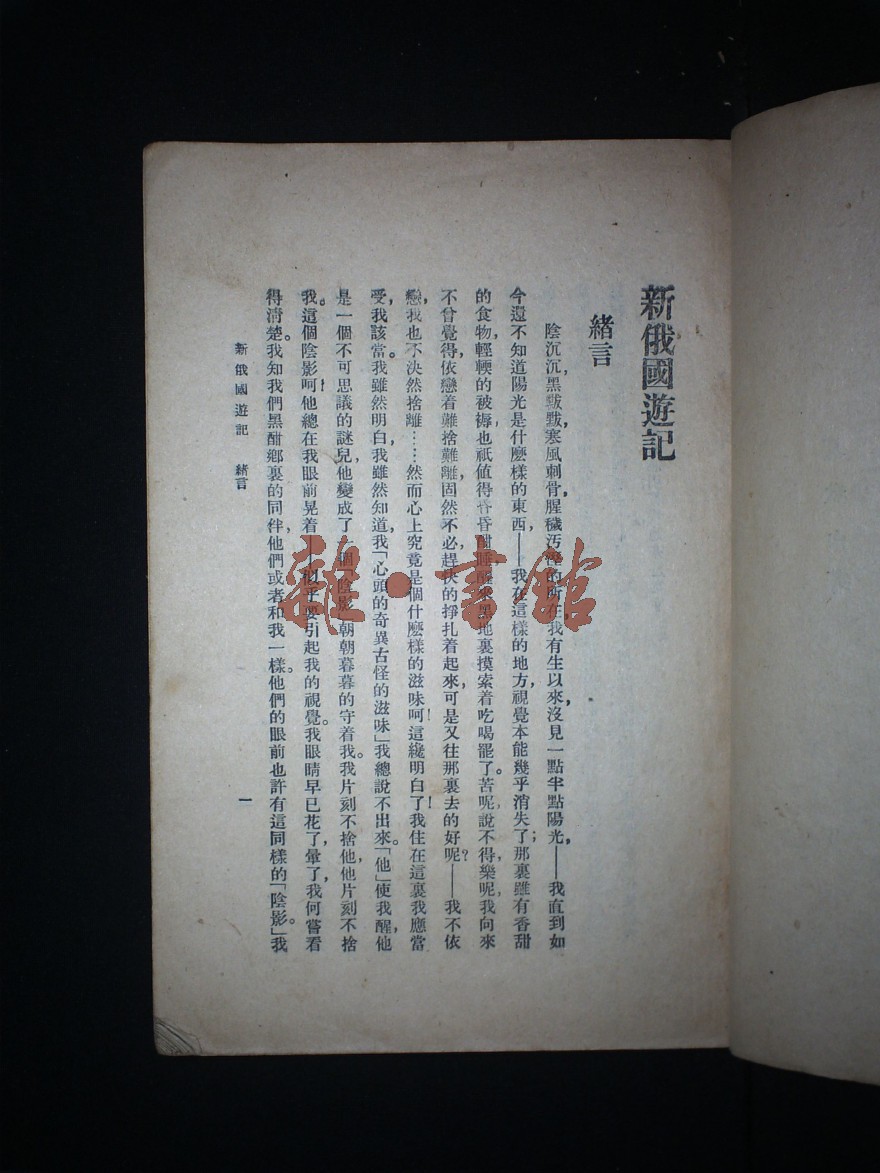 新俄國遊記
緒言
陰沉沉，黑黢黢，寒風刺骨，腥穢污的所在，我有生以來，沒見一點半點陽光，——我直到如
今還不知道陽光是什麽樣的東西，——我在這樣的地方，視覺本能幾乎消失了；那裏雖有香甜
的食物，輕輭的被褥，也祇値得昏昏酣睡，醒來黑地裏摸索着吃喝罷了。苦呢，說不得，樂呢，我向來
不曾覺得，依戀着難捨難離，固然不必，趕快的掙扎着起來，可是又往那裏去的好呢？——我不依
戀，我也不決然捨離……然而心上究竟是個什麽樣的滋味呵！這纔明白了！我住在這裏我應當
受，我該當。我雖然明白，我雖然知道，我「心頭的奇異古怪的滋味」我總說不出來。「他」使我醒，他
是一個不可思議的謎兒，他變成了一個「陰影」朝朝暮暮的守着我。我片刻不捨他，他片刻不捨
我。這個陰影呵！他總在我眼前晃着——似乎要引起我的視覺。我眼睛早已花了，暈了，我何嘗看
得清楚。我知我們黑酣鄉裏的同伴，他們或者和我一樣。他們的眼前也許有這同樣的「陰影」。我
新俄國遊記　緒言
一
雜·書館